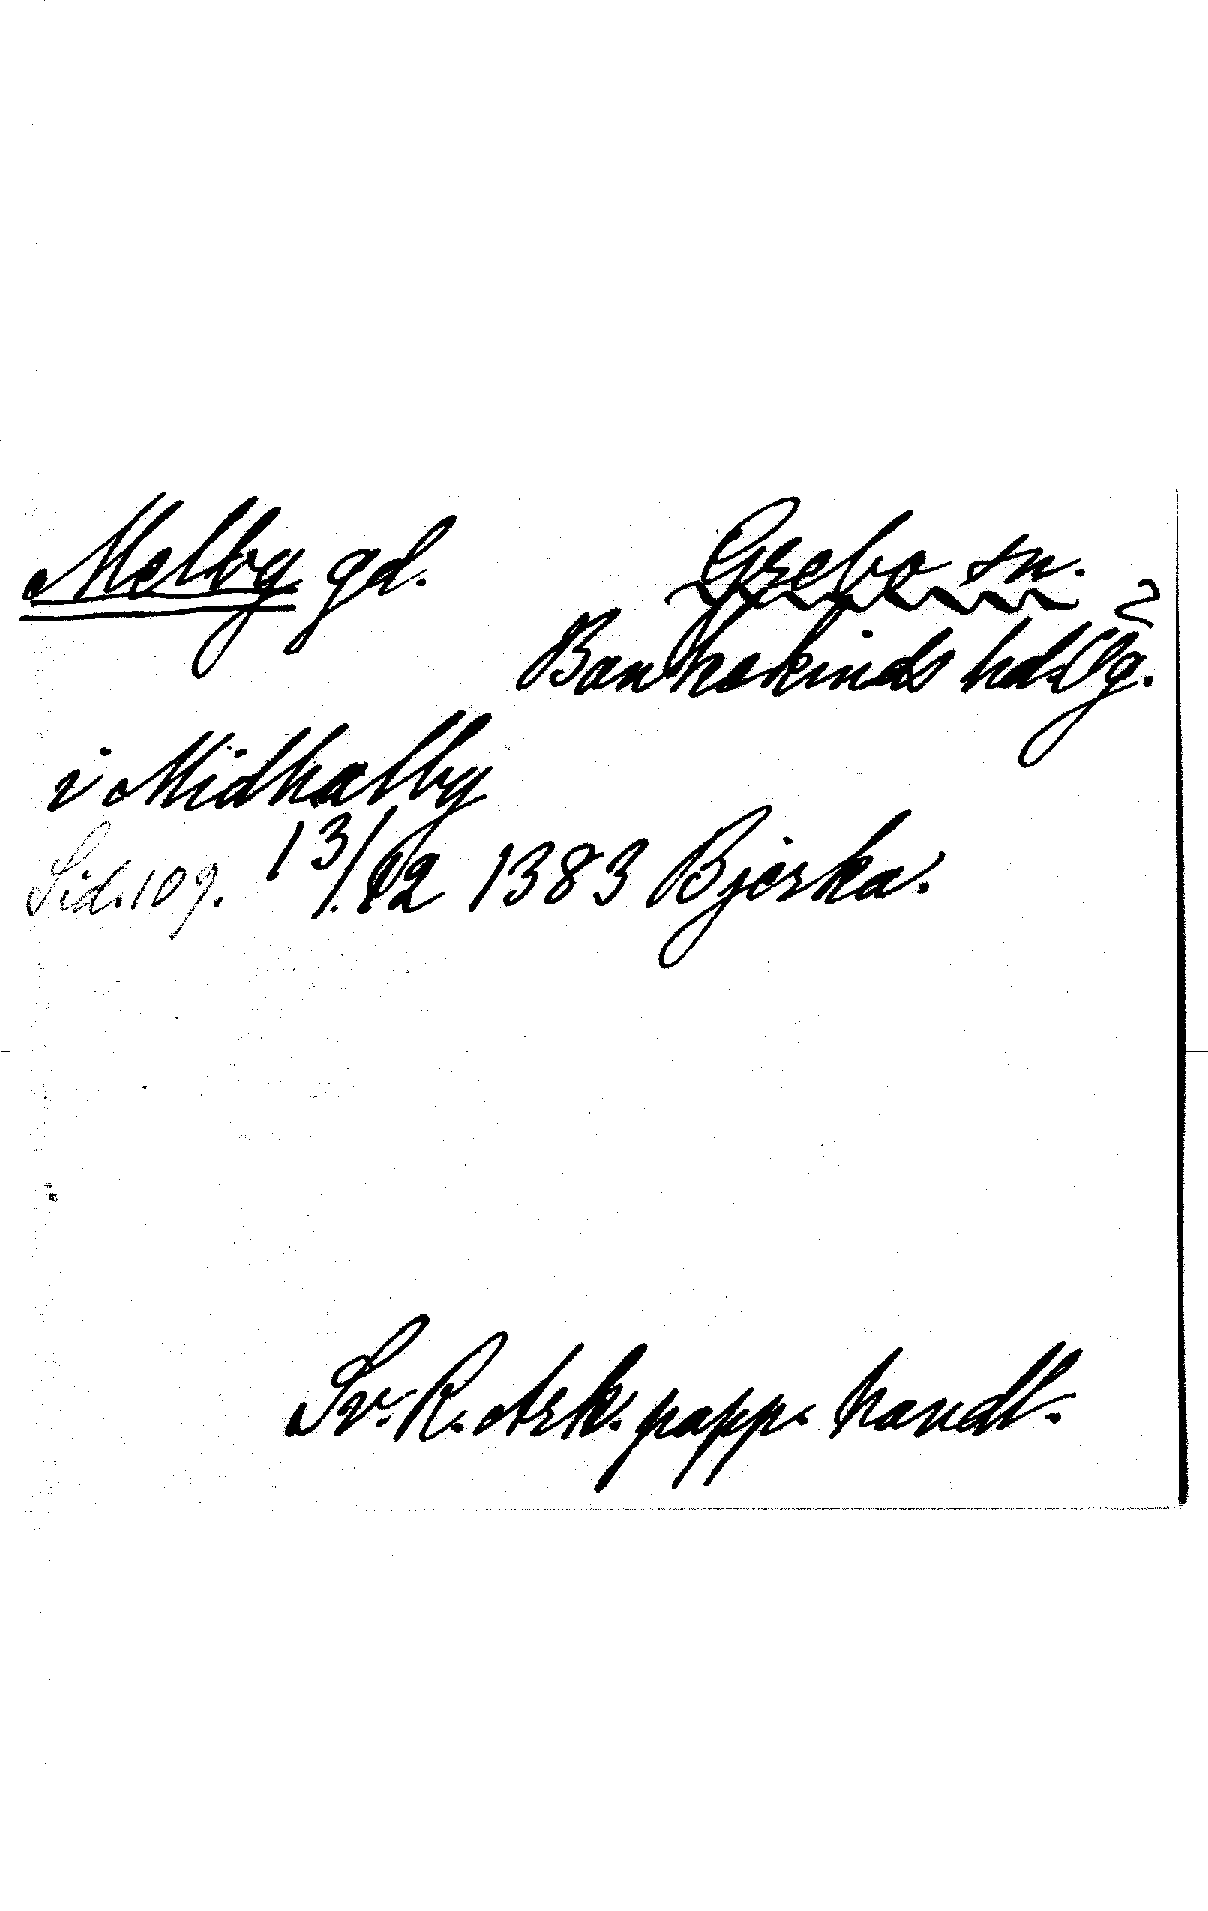 Melby gd. Grebo sn.
Bankekinds hd. Ög.
i Midhælby
Sid. 109. 13/12 1383 Bjerka.
Sv. R. Ark. papp. handl.